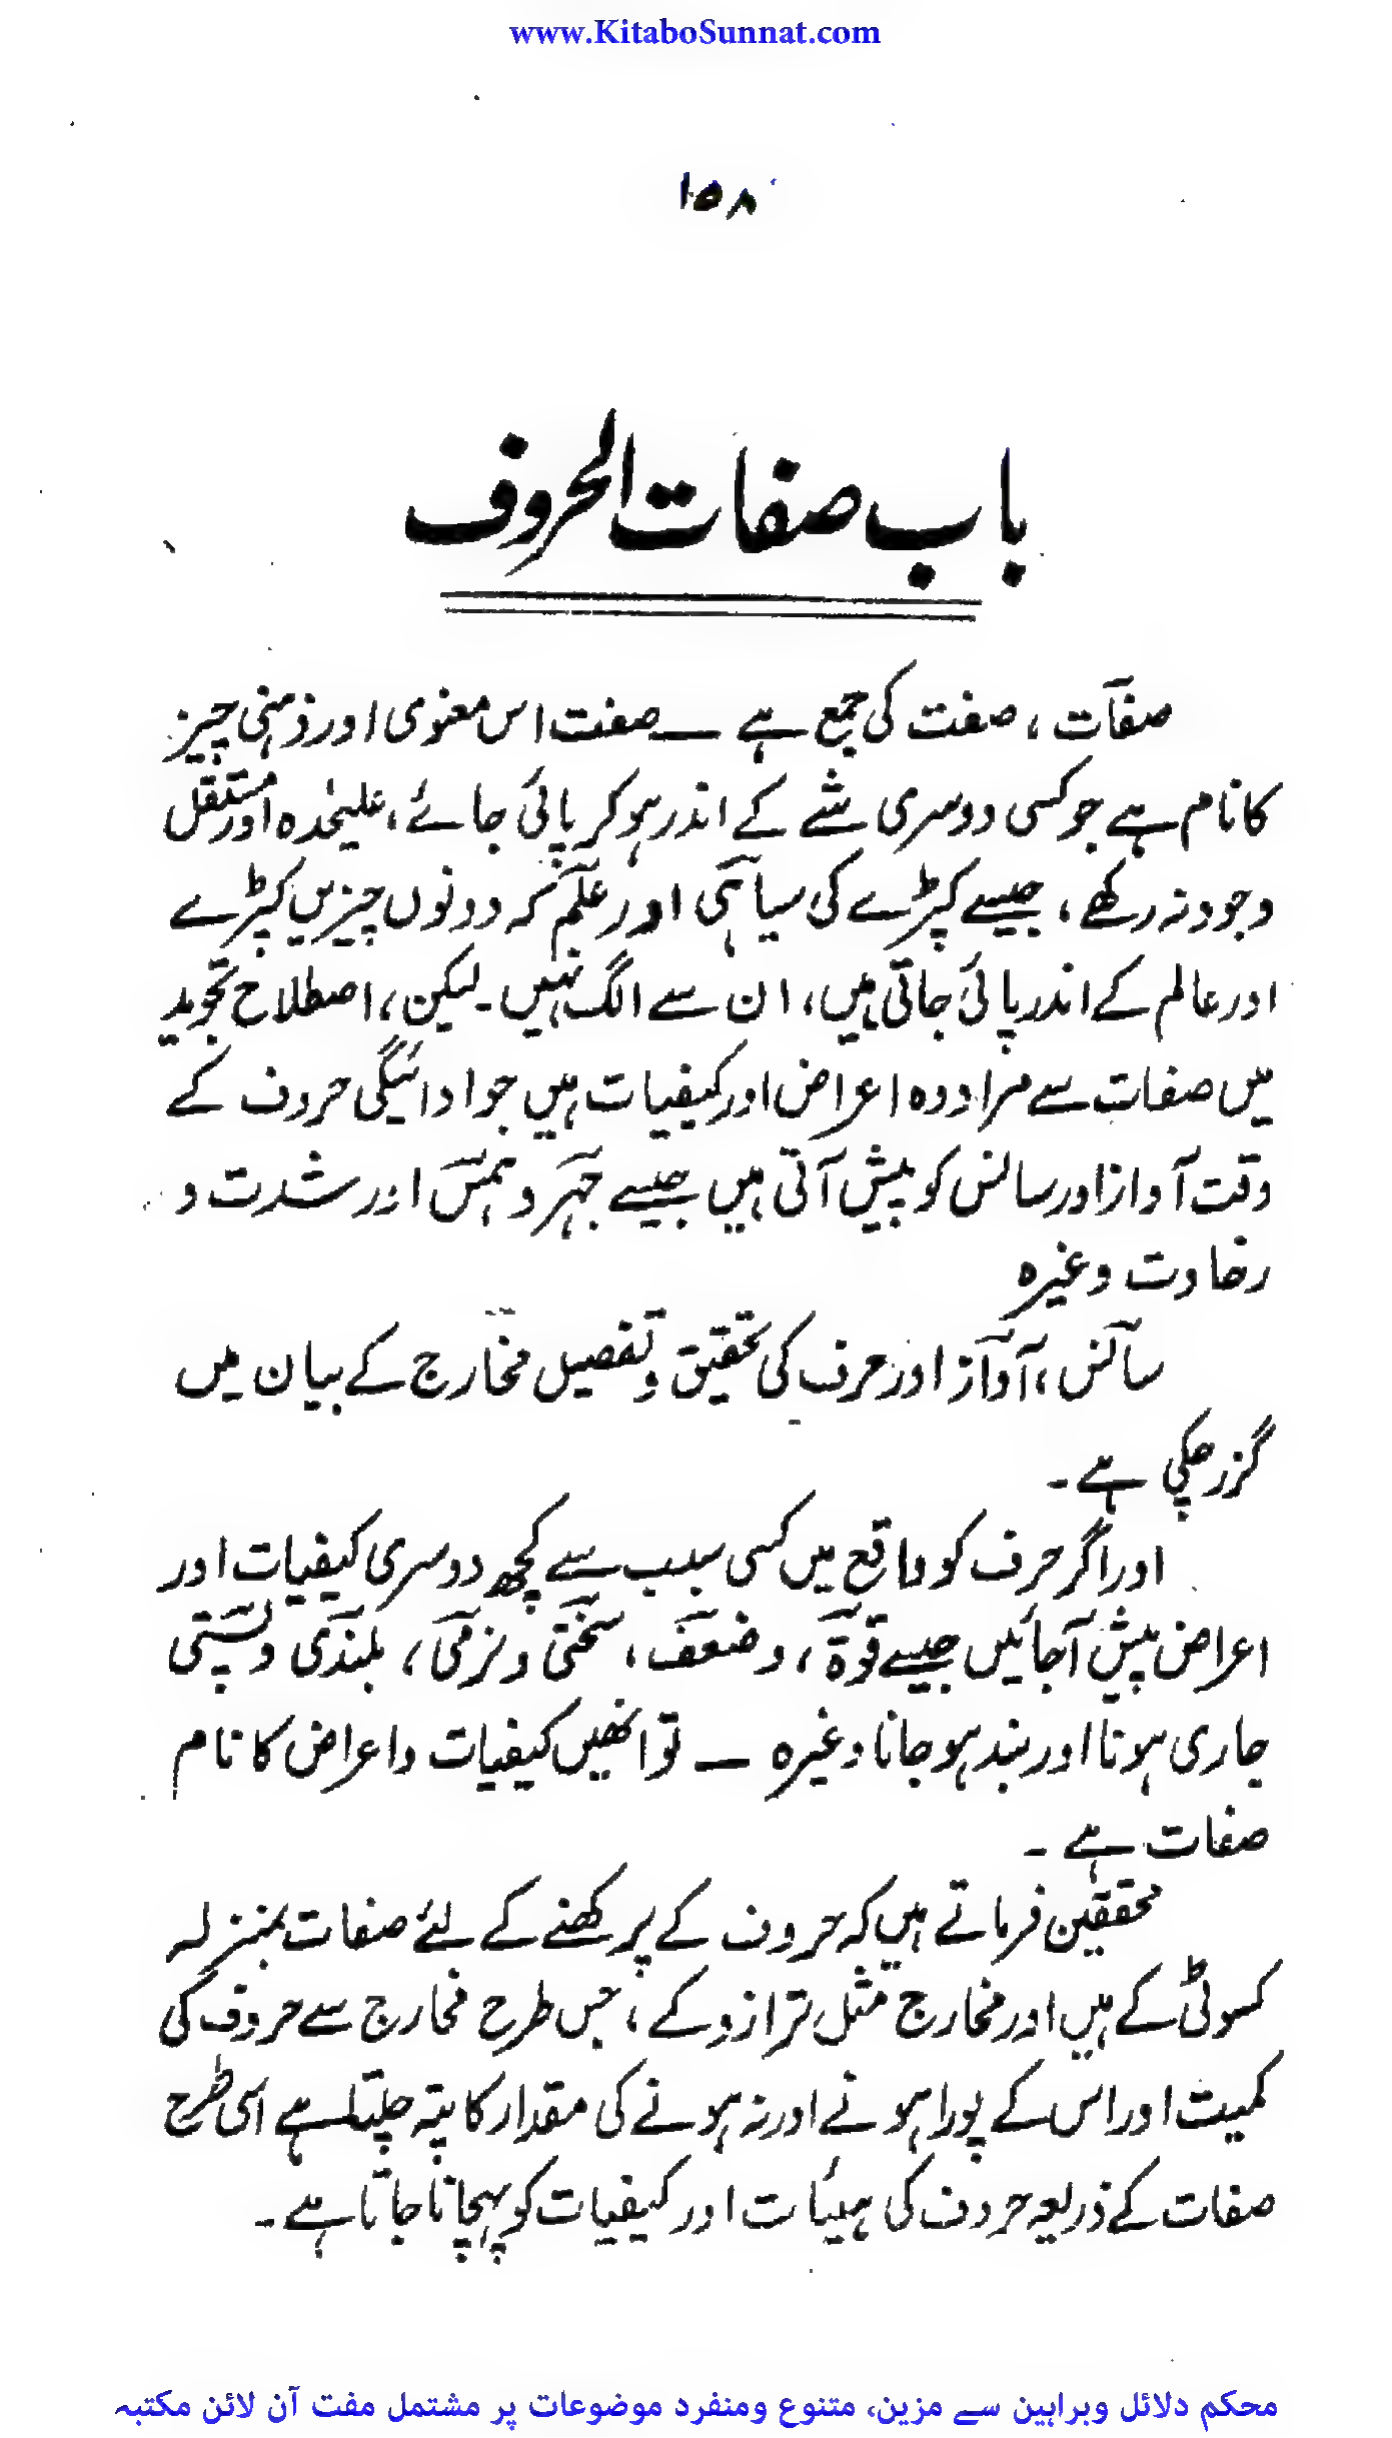 www.KitaboSunnat.com
۱۵۸
باب صفات الحروف
صفات، صفت کی جمع ہے — صفت اس معنوی اور ذہنی چیز
کا نام ہے جو کسی دوسری شے کے اندر ہو کر پائی جائے، علیحدہ اور مستقل
وجود نہ رکھے، جیسے کپڑے کی سیاہی اور علم کہ دونوں چیزیں کپڑے
اور عالم کے اندر پائی جاتی ہیں، ان سے الگ نہیں۔ لیکن، اصطلاح تجوید
میں صفات سے مراد وہ اعراض اور کیفیات ہیں جو ادائیگی حروف کے
وقت آواز اور سانس کو پیش آتی ہیں جیسے جہر و ہمس اور شدت و
رخاوت وغیرہ
سانس، آواز اور حرف کی تحقیق و تفصیل مخارج کے بیان میں
گزر چکی ہے۔
اور اگر حرف کو واقع میں کسی سبب سے کچھ دوسری کیفیات اور
اعراض پیش آجائیں جیسے قوۃ، وضعف، سختی و نرمی، بلندی و پستی
جاری ہونا اور بند ہو جانا وغیرہ — تو انھیں کیفیات و اعراض کا نام
صفات ہے۔
محققین فرماتے ہیں کہ حروف کے پرکھنے کے لئے صفات بمنزلہ
کسوٹی کے ہیں اور مخارج مثل ترازو کے، جس طرح مخارج سے حروف کی
کمیت اور اس کے پورا ہونے اور نہ ہونے کی مقدار کا پتہ چلتا ہے اسی طرح
صفات کے ذریعہ حروف کی ہیئات اور کیفیات کو پہچانا جاتا ہے۔
محکم دلائل وبراہین سے مزین، متنوع ومنفرد موضوعات پر مشتمل مفت آن لائن مکتبہ